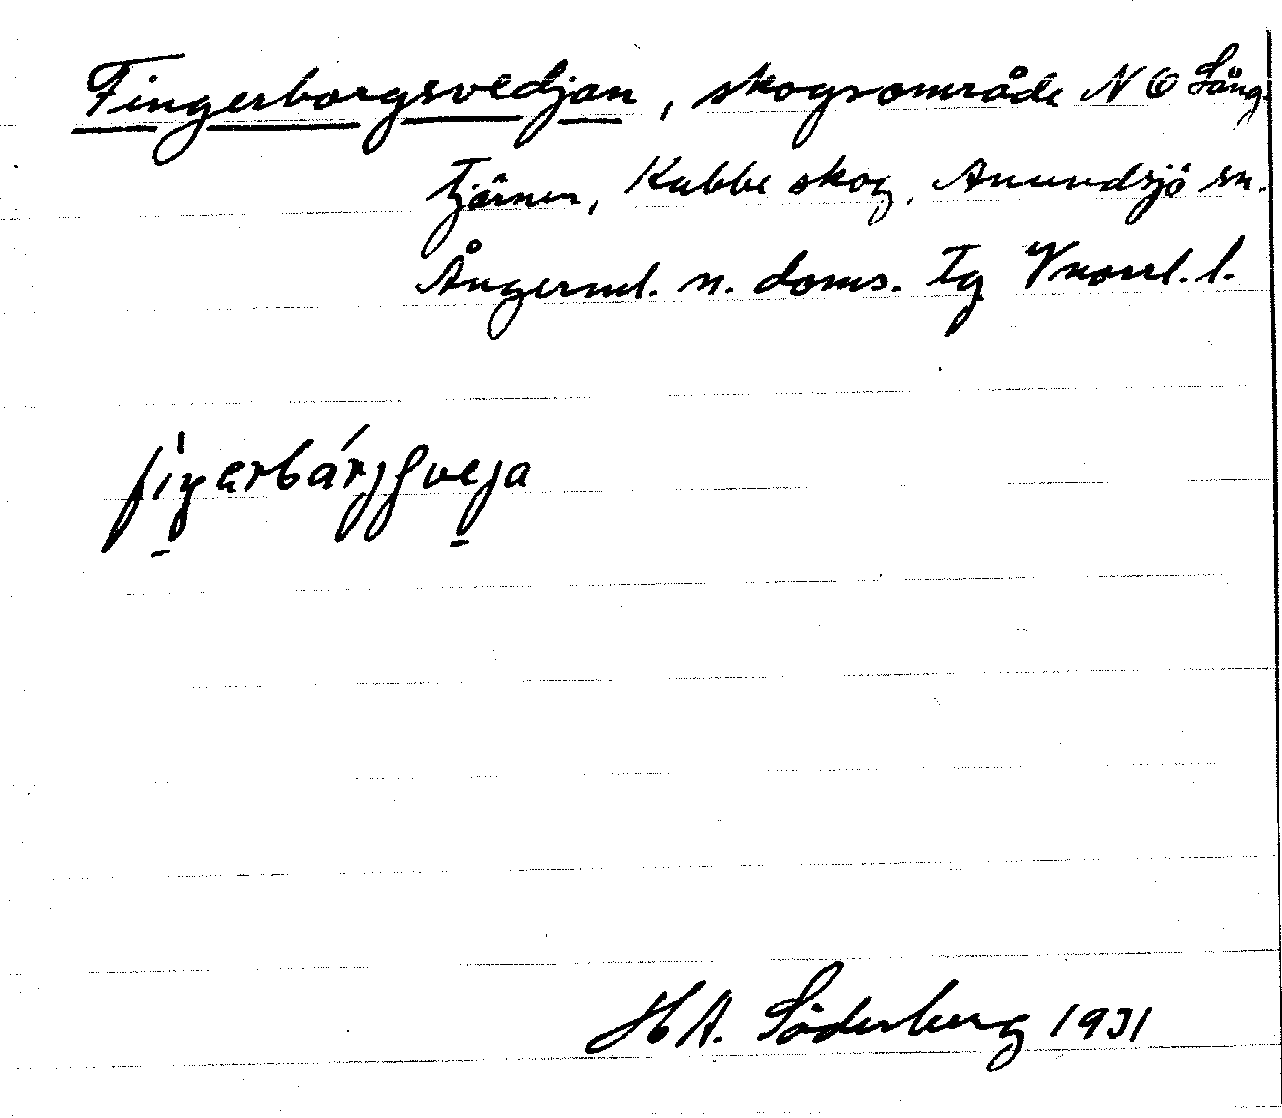 Fingerborgsvedjan, skogsområde N O Lång-
tjärnen, Kubbe skog, Anundsjö sn.
Ångerml. n. doms. tg Vnorrl. l.
fiŋɐrbárjʃveja
H A. Söderberg 1931